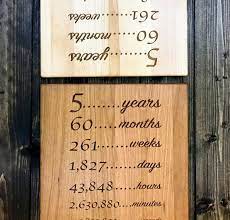 261.....weeks
60...months
5......years
5........years
60.....months
261......weeks
1,827.......days
43,848.....hours
2,630,880....minutes